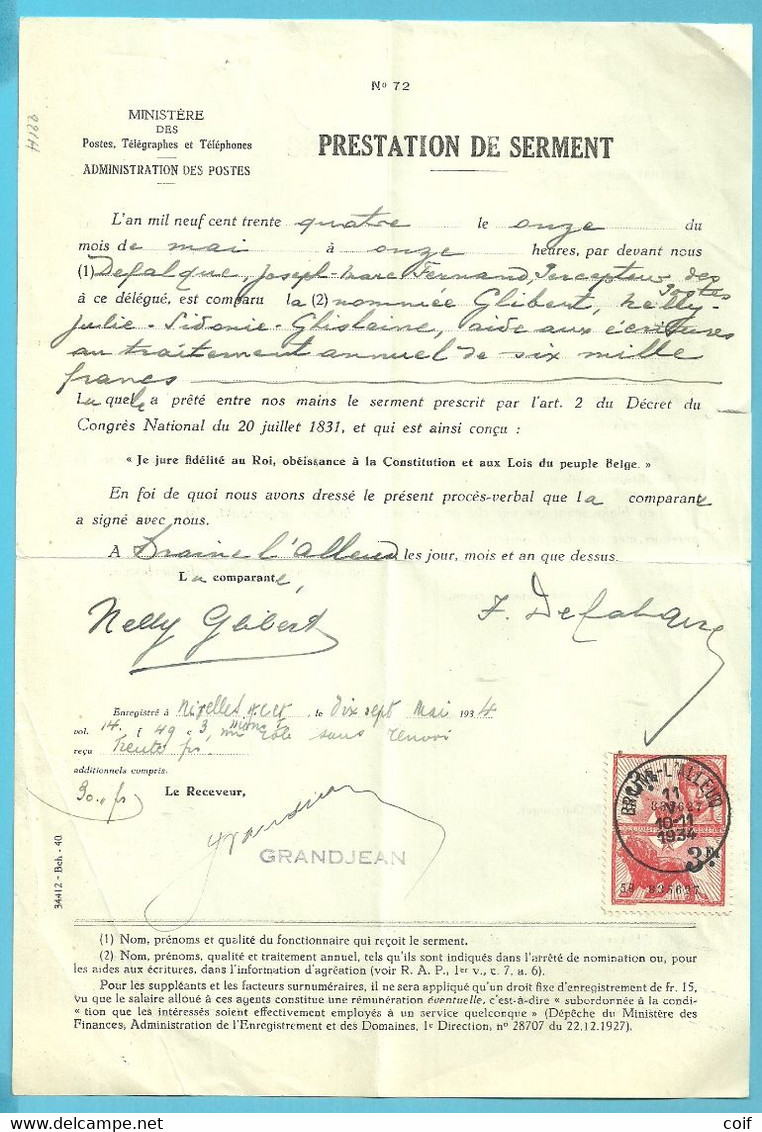 Nº 72
H122
MINISTÈRE
DES
Postes, Télégraphes et Téléphones
ADMINISTRATION DES POSTES
PRESTATION DE SERMENT
L'an mil neuf cent trente quatre le onze du
mois de mai à onze heures, par devant nous
(1) Defalque, Joseph-Marc Fernand, Percepteur des Postes
à ce délégué, est comparu la (2) nommée Glibert, Nelly-
Julie-Sidonie-Ghislaine, aide aux écritures
au traitement annuel de six mille
francs
Laquelle a prêté entre nos mains le serment prescrit par l'art. 2 du Décret du
Congrès National du 20 juillet 1831, et qui est ainsi conçu :
« Je jure fidélité au Roi, obéissance à la Constitution et aux Lois du peuple Belge. »
En foi de quoi nous avons dressé le présent procès-verbal que la comparante
a signé avec nous.
A Braine l'Alleud les jour, mois et an que dessus.
La comparante,
Nelly Glibert
F. Defalque
Enregistré à Nivelles A.C. le dix sept Mai 1934
vol. 14 f 49 c 3, un rôle sans renvoi
reçu trente frs
additionnels compris.
30,, fr
Le Receveur,
Grandjean
GRANDJEAN
BRAINE-L'ALLEUD
11
V
10-11
1934
3 Fr
58 835627
34412 - Bch. - 40.
(1) Nom, prénoms et qualité du fonctionnaire qui reçoit le serment.
(2) Nom, prénoms, qualité et traitement annuel, tels qu'ils sont indiqués dans l'arrêté de nomination ou, pour
les aides aux écritures, dans l'information d'agréation (voir R. A. P., 1er v., c. 7, a. 6).
Pour les suppléants et les facteurs surnuméraires, il ne sera appliqué qu'un droit fixe d'enregistrement de fr. 15,
vu que le salaire alloué à ces agents constitue une rémunération éventuelle, c'est-à-dire « subordonnée à la condi-
« tion que les intéressés soient effectivement employés à un service quelconque » (Dépêche du Ministère des
Finances, Administration de l'Enregistrement et des Domaines, 1e Direction, nº 28707 du 22.12.1927).
coif